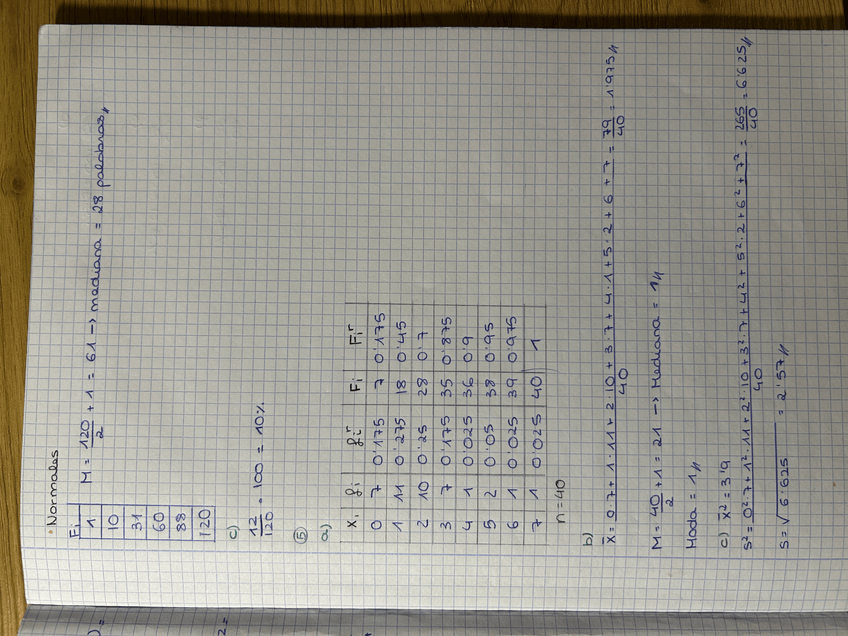 • Normales
Fi
1
10
31
60
88
120
M = 120/2 + 1 = 61 → mediana = 28 palabras//
c)
12/120 · 100 = 10%
⑤
a)
xi fi fiʳ Fi Fiʳ
0 7 0'175 7 0'175
1 11 0'275 18 0'45
2 10 0'25 28 0'7
3 7 0'175 35 0'875
4 1 0'025 36 0'9
5 2 0'05 38 0'95
6 1 0'025 39 0'975
7 1 0'025 40 1
n=40
b)
x̄ = 0·7 + 1·11 + 2·10 + 3·7 + 4·1 + 5·2 + 6 + 7 / 40 = 79/40 = 1'975//
M = 40/2 + 1 = 21 → Mediana = 1//
Moda = 1//
c) x̄² = 3'9
s² = 0²·7 + 1²·11 + 2²·10 + 3²·7 + 4² + 5²·2 + 6² + 7² / 40 = 265/40 = 6'625//
s = √6'625 = 2'57//
) =
2 =